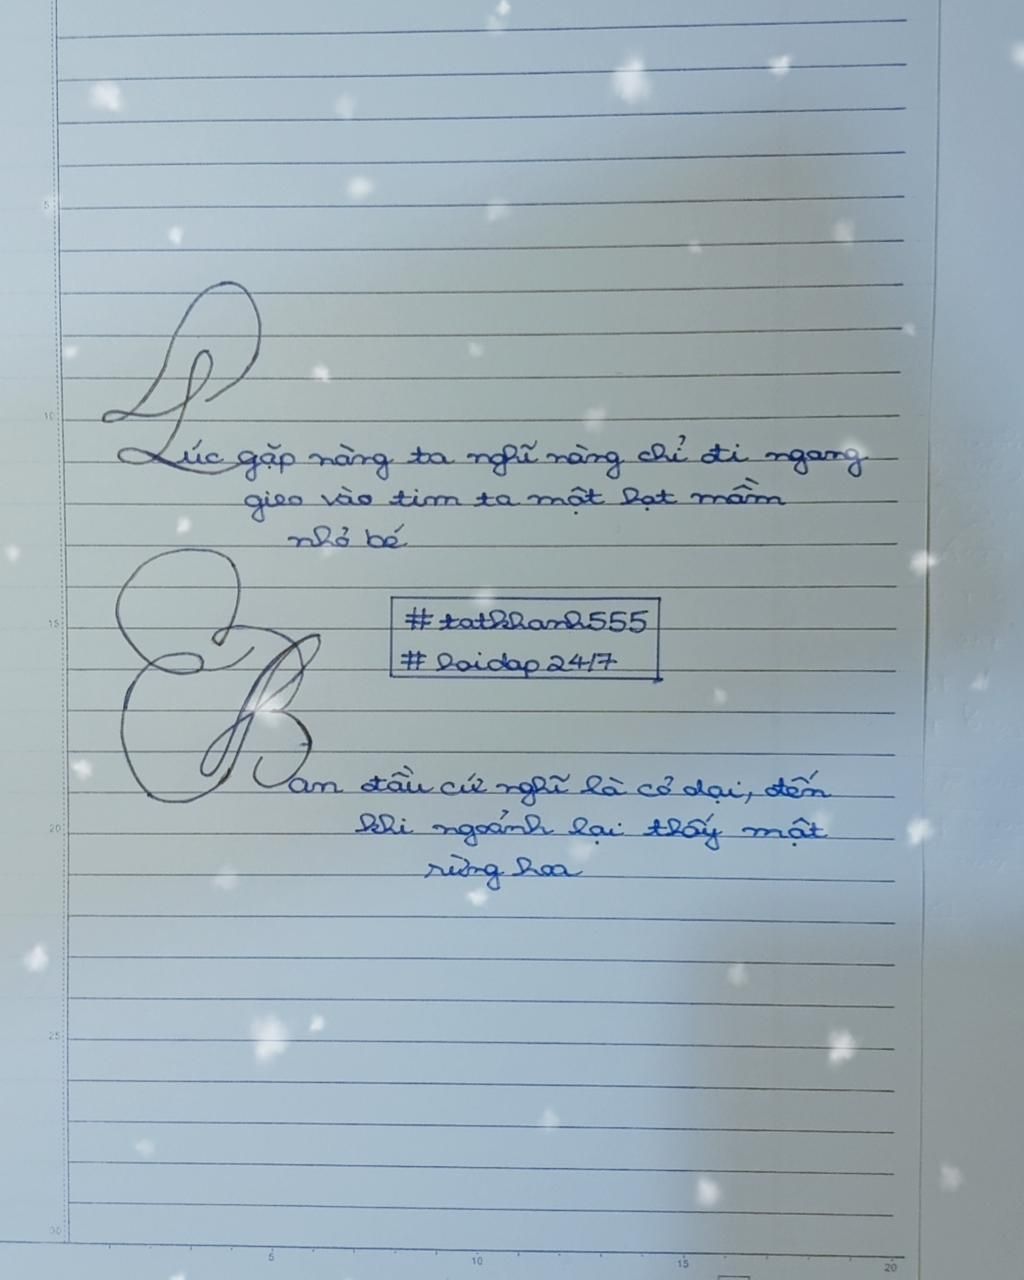 Lúc gặp nàng ta nghĩ nàng chỉ đi ngang
gieo vào tim ta một hạt mầm
nhỏ bé
# tathhanh555
# hoidap 24/7
Ban đầu cứ nghĩ là cỏ dại, đến
khi ngoảnh lại thấy một
rừng hoa
5
10
15
20
25
30
5
10
15
20